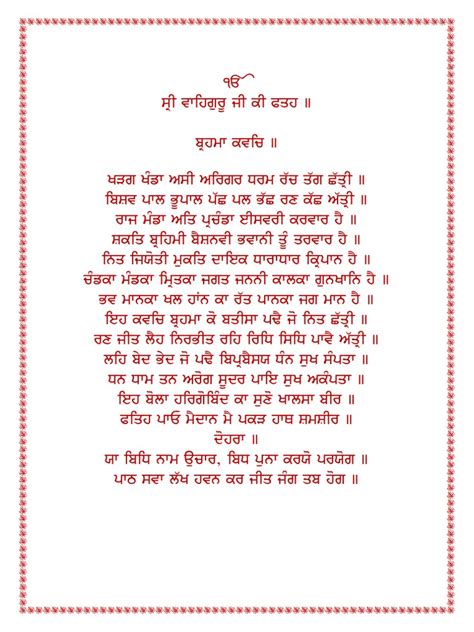 ੴ
ਸ੍ਰੀ ਵਾਹਿਗੁਰੂ ਜੀ ਕੀ ਫਤਹ ॥
ਬ੍ਰਹਮਾ ਕਵਚਿ ॥
ਖੜਗ ਖੰਡਾ ਅਸੀ ਅਰਿਗਰ ਧਰਮ ਰੱਚ ਤੱਗ ਛੱਤ੍ਰੀ ॥
ਬਿਸ਼ਵ ਪਾਲ ਭੂਪਾਲ ਪੱਛ ਪਲ ਭੱਛ ਰਣ ਕੱਛ ਅੱਤ੍ਰੀ ॥
ਰਾਜ ਮੰਡਾ ਅਤਿ ਪ੍ਰਚੰਡਾ ਈਸਵਰੀ ਕਰਵਾਰ ਹੈ ॥
ਸ਼ਕਤਿ ਬ੍ਰਹਿਮੀ ਬੈਸ਼ਨਵੀ ਭਵਾਨੀ ਤੂੰ ਤਰਵਾਰ ਹੈ ॥
ਨਿਤ ਜਿਯੋਤੀ ਮੁਕਤਿ ਦਾਇਕ ਧਾਰਾਧਾਰ ਕ੍ਰਿਪਾਨ ਹੈ ॥
ਚੰਡਕਾ ਮੰਡਕਾ ਮ੍ਰਿਤਕਾ ਜਗਤ ਜਨਨੀ ਕਾਲਕਾ ਗੁਨਖਾਨਿ ਹੈ ॥
ਭਵ ਮਾਨਕਾ ਖਲ ਹਾਂਨ ਕਾ ਰੱਤ ਪਾਨਕਾ ਜਗ ਮਾਨ ਹੈ ॥
ਇਹ ਕਵਚਿ ਬ੍ਰਹਮਾ ਕੋ ਬਤੀਸਾ ਪਢੈ ਜੋ ਨਿਤ ਛੱਤ੍ਰੀ ॥
ਰਣ ਜੀਤ ਲੈਹ ਨਿਰਭੀਤ ਰਹਿ ਰਿਧਿ ਸਿਧਿ ਪਾਵੈ ਅੱਤ੍ਰੀ ॥
ਲਹਿ ਬੇਦ ਭੇਦ ਜੋ ਪਢੈ ਬਿਪ੍ਰਬੈਸਯ ਧੰਨ ਸੁਖ ਸੰਪਤਾ ॥
ਧਨ ਧਾਮ ਤਨ ਅਰੋਗ ਸੂਦਰ ਪਾਇ ਸੁਖ ਅਕੰਪਤਾ ॥
ਇਹ ਬੋਲਾ ਹਰਿਗੋਬਿੰਦ ਕਾ ਸੁਣੋ ਖਾਲਸਾ ਬੀਰ ॥
ਫਤਿਹ ਪਾਓ ਮੈਦਾਨ ਮੈ ਪਕੜ ਹਾਥ ਸ਼ਮਸ਼ੀਰ ॥
ਦੋਹਰਾ ॥
ਯਾ ਬਿਧਿ ਨਾਮ ਉਚਾਰ, ਬਿਧ ਪੁਨਾ ਕਰਯੋ ਪਰਯੋਗ ॥
ਪਾਠ ਸਵਾ ਲੱਖ ਹਵਨ ਕਰ ਜੀਤ ਜੰਗ ਤਬ ਹੋਗ ॥